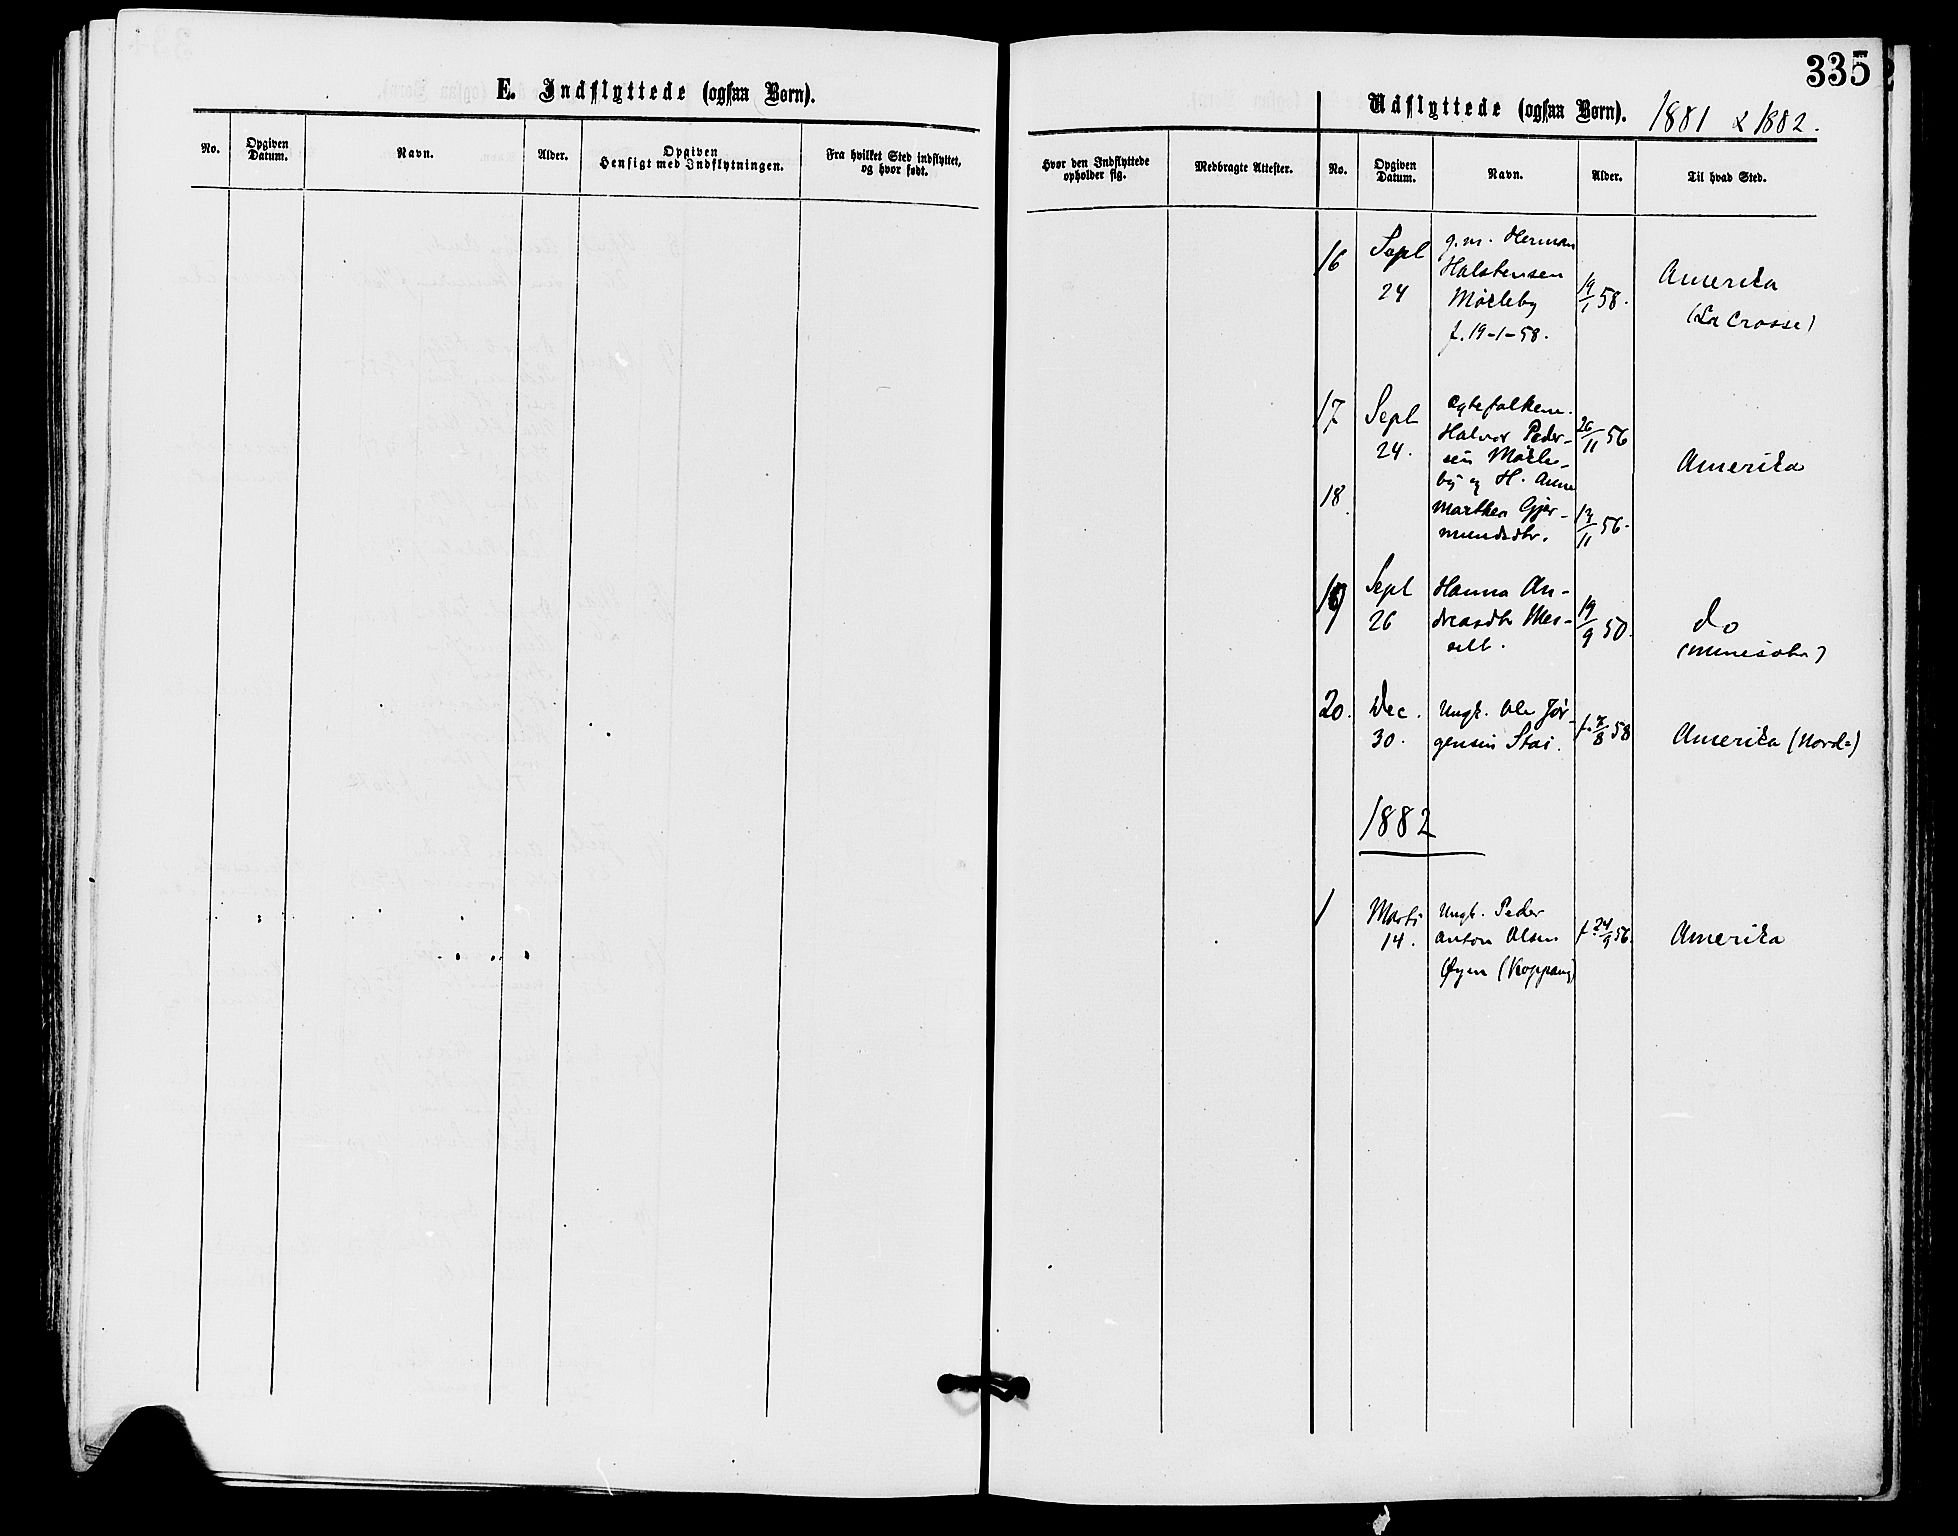 335
E. Indflyttede (ogsaa Børn).
No.
Opgiven Datum.
Navn.
Alder.
Opgiven Hensigt med Indflytningen.
Fra hvilket Sted indflyttet, og hvor født.
Udflyttede (ogsaa Børn). 1881 & 1882.
Hvor den Indflyttede opholder sig.
Medbragte Attester.
No.
Opgiven Datum.
Navn.
Alder.
Til hvad Sted.
16
Sept
24
g.m. Herman
Halstensen
Møckleby
f. 19-1-58.
19/1 58.
Amerika
(La Crosse)
17
18
Sept
24.
Egtefolkene.
Halvor Peder-
sen Møckle-
by og H. Anne
Marthea Gjer-
mundsdtr.
26/11 56
13/11 56.
Amerika
19
Sept
26
Hanna An-
dreasdtr Mes-
selt.
19/9 50.
do
(Minesota)
20.
Dec.
30.
Ungk. Ole Jør-
gensen Stai.
f. 7/8 58
Amerika (Nord=)
1882
1
Marts
14.
Ungk. Peder
Anton Olsen
Øyen (Koppang)
f. 24/9 56.
Amerika